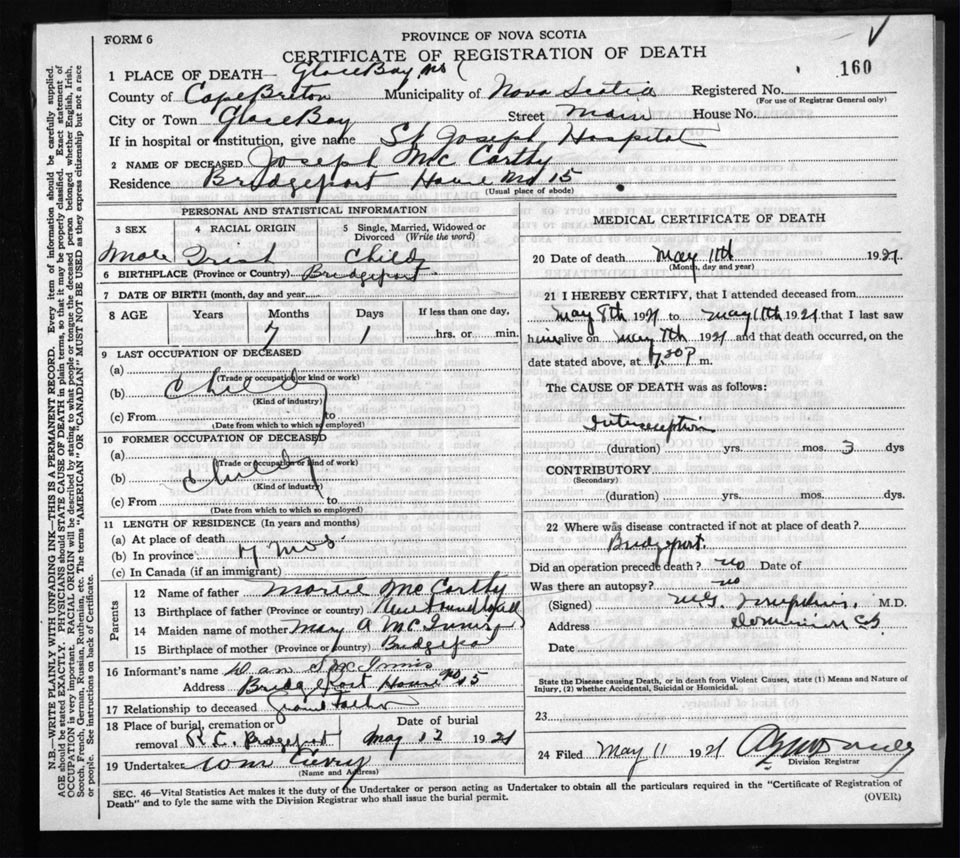 FORM 6
PROVINCE OF NOVA SCOTIA
CERTIFICATE OF REGISTRATION OF DEATH
160
1 PLACE OF DEATH— Glace Bay NS
County of Cape Breton Municipality of Nova Scotia Registered No.
(For use of Registrar General only)
City or Town Glace Bay Street Main House No.
If in hospital or institution, give name St Joseph Hospital
2 NAME OF DECEASED Joseph McCarthy
Residence Bridgeport House No 15
(Usual place of abode)
PERSONAL AND STATISTICAL INFORMATION
3 SEX 4 RACIAL ORIGIN 5 Single, Married, Widowed or Divorced (Write the word)
Male Irish Child
6 BIRTHPLACE (Province or Country) Bridgeport
7 DATE OF BIRTH (month, day and year)
8 AGE Years Months Days If less than one day,
7 1 hrs. or min.
9 LAST OCCUPATION OF DECEASED
(a)
(Trade or occupation or kind or work)
(b) Child
(Kind of industry)
(c) From to
(Date from which to which so employed)
10 FORMER OCCUPATION OF DECEASED
(a)
(Trade or occupation or kind or work)
(b) Child
(Kind of industry)
(c) From to
(Date from which to which so employed)
11 LENGTH OF RESIDENCE (In years and months)
(a) At place of death
(b) In province 7 mos.
(c) In Canada (if an immigrant)
Parents
12 Name of father McCarthy
13 Birthplace of father (Province or country) Newfoundland
14 Maiden name of mother Mary A McInnis
15 Birthplace of mother (Province or country) Bridgeport
16 Informant's name Dan McInnis
Address Bridgeport House No 15
17 Relationship to deceased Grand Father
18 Place of burial, cremation or removal R.C. Bridgeport
Date of burial May 12 1921
19 Undertaker
(Name and Address)
MEDICAL CERTIFICATE OF DEATH
20 Date of death May 11th 1921.
(Month, day and year)
21 I HEREBY CERTIFY, that I attended deceased from
May 8th 1921 to May 11th 1921 that I last saw
him alive on May 7th 1921 and that death occurred, on the
date stated above, at 7.30 P m.
The CAUSE OF DEATH was as follows:
Intussusception
(duration) yrs. mos. 3 dys
CONTRIBUTORY
(Secondary)
(duration) yrs. mos. dys.
22 Where was disease contracted if not at place of death?
Bridgeport.
Did an operation precede death? no Date of
Was there an autopsy? no
(Signed) M.D.
Address Dominion CB
Date
State the Disease causing Death, or in death from Violent Causes, state (1) Means and Nature of Injury, (2) whether Accidental, Suicidal or Homicidal.
23
24 Filed May 11 1921
Division Registrar
SEC. 46—Vital Statistics Act makes it the duty of the Undertaker or person acting as Undertaker to obtain all the particulars required in the "Certificate of Registration of
Death" and to fyle the same with the Division Registrar who shall issue the burial permit.
(OVER)
N.B.—WRITE PLAINLY WITH UNFADING INK—THIS IS A PERMANENT RECORD. Every item of information should be carefully supplied.
AGE should be stated EXACTLY. PHYSICIANS should STATE CAUSE OF DEATH in plain terms, so that it may be properly classified. Exact statement of
OCCUPATION is very important. RACIAL ORIGIN will be described by stating to what people or tongue the deceased person belonged whether English, Irish,
Scotch, French, German, Russian, Ruthenian, etc. The terms "AMERICAN" OR "CANADIAN" MUST NOT BE USED as they express citizenship but not a race
or people. See instructions on back of Certificate.